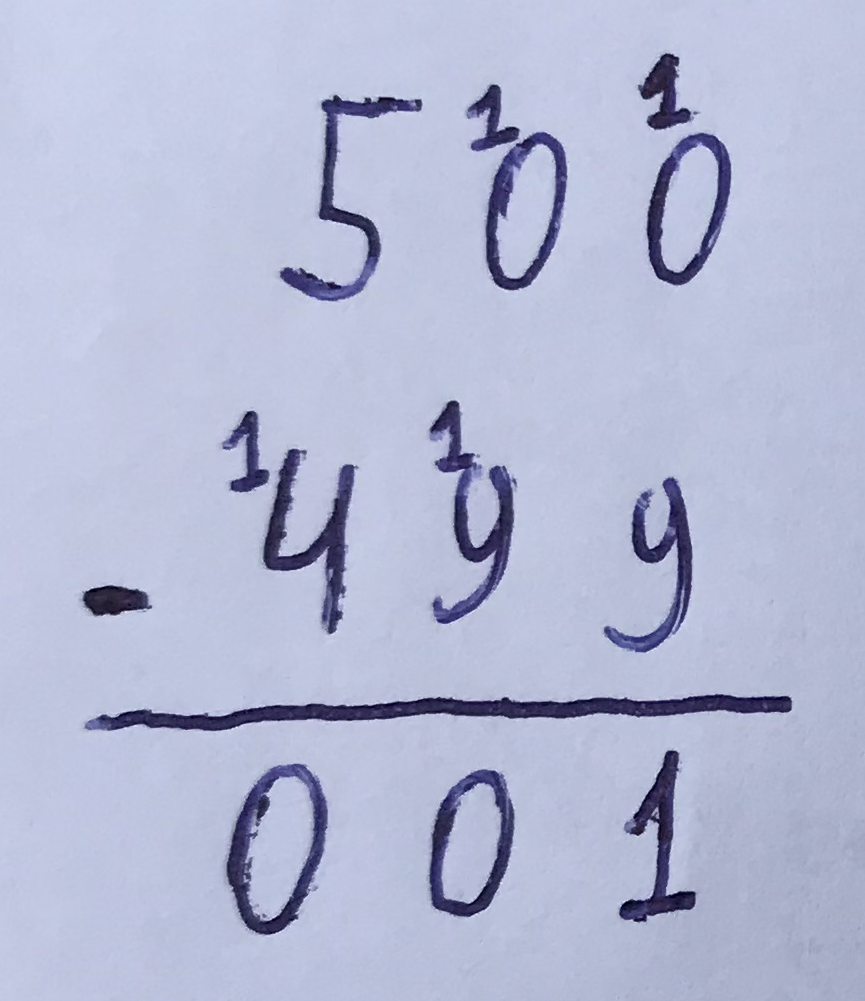 5 ¹0 ¹0
- ¹4 ¹9 9
0 0 1